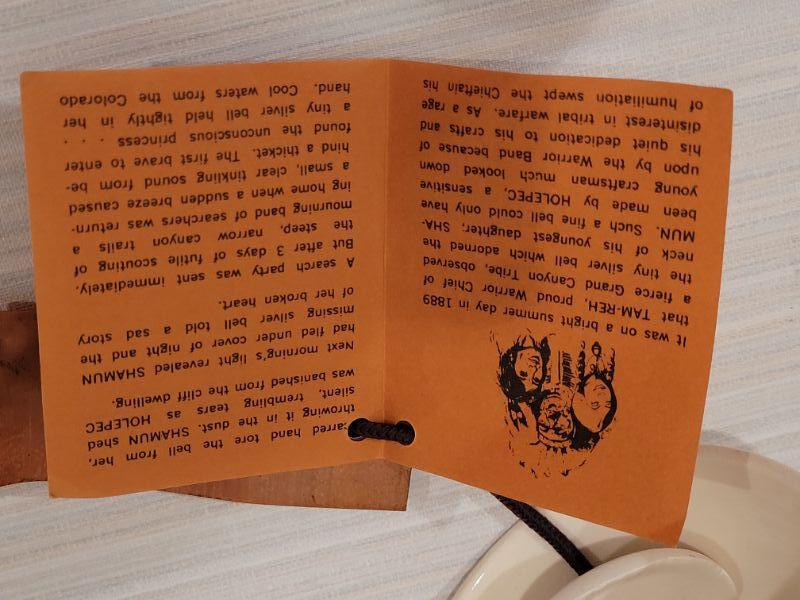 It was on a bright summer day in 1889
that TAM-REH, proud Warrior Chief of
a fierce Grand Canyon Tribe, observed
the tiny silver bell which adorned the
neck of his youngest daughter, SHA-
MUN. Such a fine bell could only have
been made by HOLEPEC, a sensitive
young craftsman much looked down
upon by the Warrior Band because of
his quiet dedication to his crafts and
disinterest in tribal warfare. As a rage
of humiliation swept the Chieftain his
arred hand tore the bell from her,
throwing it in the dust. SHAMUN shed
silent, trembling tears as HOLEPEC
was banished from the cliff dwelling.
Next morning's light revealed SHAMUN
had fled under cover of night and the
missing silver bell told a sad story
of her broken heart.
A search party was sent immediately.
But after 3 days of futile scouting of
the steep, narrow canyon trails a
mourning band of searchers was return-
ing home when a sudden breeze caused
a small, clear tinkling sound from be-
hind a thicket. The first brave to enter
found the unconscious princess . . .
a tiny silver bell held tightly in her
hand. Cool waters from the Colorado